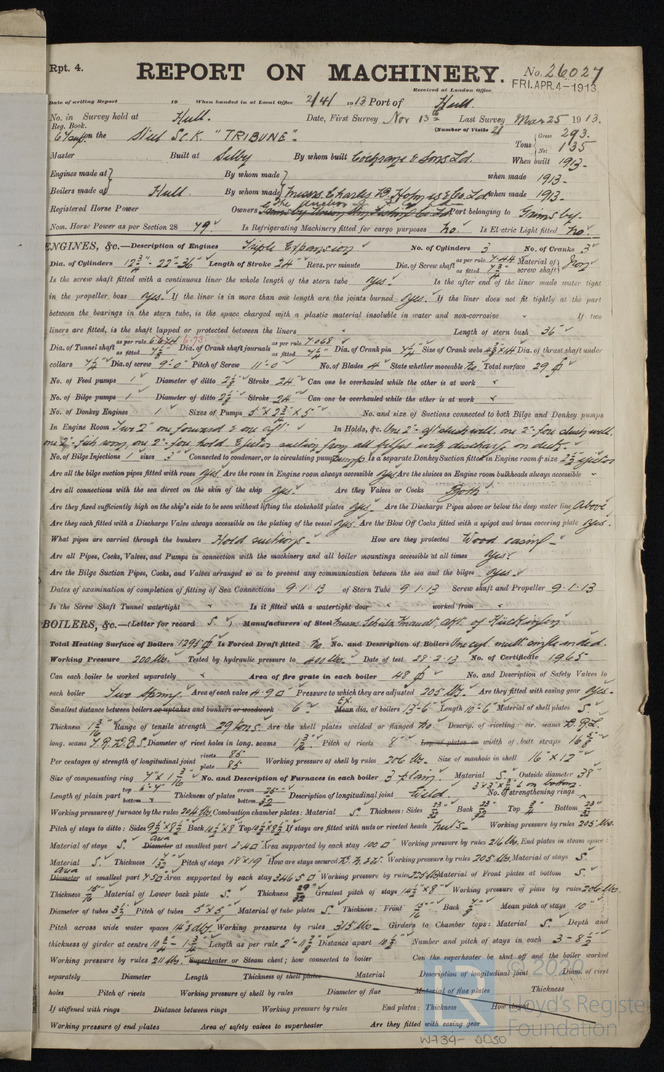 Rpt. 4.
REPORT ON MACHINERY.
No. 26027
Received at London Office FRI. APR. 4 - 1913
Date of writing Report 19 When handed in at Local Office 2/4/1913 Port of Hull.
No. in Survey held at Hull. Date, First Survey Nov 13th Last Survey Mar 25 1913.
Reg. Book. (Number of Visits 21
on the Steel Sc. K. "TRIBUNE". Tons Gross 293. Net 135
Master Built at Selby By whom built Cochrane & Sons Ld. When built 1913.
Engines made at By whom made when made 1913.
Boilers made at Hull. By whom made Messrs Charles D. Holmes & Co. Ld. when made 1913.
Registered Horse Power Owners Port belonging to Grimsby.
Nom. Horse Power as per Section 28 79. Is Refrigerating Machinery fitted for cargo purposes no. Is Electric Light fitted no.
ENGINES, &c.—Description of Engines Triple Expansion No. of Cylinders 3 No. of Cranks 3
Dia. of Cylinders 12 3/4" 22" 36" Length of Stroke 24" Revs. per minute Dia. of Screw shaft as per rule 7.44 as fitted Material of screw shaft Iron
Is the screw shaft fitted with a continuous liner the whole length of the stern tube yes. Is the after end of the liner made water tight
in the propeller boss yes. If the liner is in more than one length are the joints burned yes. If the liner does not fit tightly at the part
between the bearings in the stern tube, is the space charged with a plastic material insoluble in water and non-corrosive If two
liners are fitted, is the shaft lapped or protected between the liners Length of stern bush 36"
Dia. of Tunnel shaft as per rule as fitted Dia. of Crank shaft journals as per rule 7.068 as fitted 7 1/4 Dia. of Crank pin 7 1/4" Size of Crank webs Dia. of thrust shaft under
collars 7 1/4" Dia. of screw 9'-0" Pitch of Screw 11'-0" No. of Blades 4 State whether moveable no Total surface 29
No. of Feed pumps 1 Diameter of ditto Stroke 24" Can one be overhauled while the other is at work
No. of Bilge pumps 1 Diameter of ditto Stroke 24" Can one be overhauled while the other is at work
No. of Donkey Engines 1 Sizes of Pumps No. and size of Suctions connected to both Bilge and Donkey pumps
In Engine Room Two 2" one forward & one aft. In Holds, &c. One 2" aft slushwell, one 2" fore slush well,
one 2" fish room, one 2" fore hold. Ejector suction from all bilges with discharge on deck.
No. of Bilge Injections 1 sizes 3" Connected to condenser, or to circulating pump pump Is a separate Donkey Suction fitted in Engine room & size 2 1/2" ejector
Are all the bilge suction pipes fitted with roses yes Are the roses in Engine room always accessible yes Are the sluices on Engine room bulkheads always accessible
Are all connections with the sea direct on the skin of the ship yes. Are they Valves or Cocks Both
Are they fixed sufficiently high on the ship's side to be seen without lifting the stokehold plates yes. Are the Discharge Pipes above or below the deep water line Above
Are they each fitted with a Discharge Valve always accessible on the plating of the vessel yes. Are the Blow Off Cocks fitted with a spigot and brass covering plate yes.
What pipes are carried through the bunkers Hold suctions. How are they protected Wood casing.
Are all Pipes, Cocks, Valves, and Pumps in connection with the machinery and all boiler mountings accessible at all times yes.
Are the Bilge Suction Pipes, Cocks, and Valves arranged so as to prevent any communication between the sea and the bilges yes.
Dates of examination of completion of fitting of Sea Connections 9.1.13 of Stern Tube 9.1.13 Screw shaft and Propeller 9.1.13
Is the Screw Shaft Tunnel watertight Is it fitted with a watertight door worked from
BOILERS, &c.—(Letter for record S. Manufacturers of Steel
Total Heating Surface of Boilers 1295 Is Forced Draft fitted No. No. and Description of Boilers One cyl. mult. single ended.
Working Pressure 200 lbs. Tested by hydraulic pressure to 400 lbs. Date of test 28.2.13 No. of Certificate 1965
Can each boiler be worked separately Area of fire grate in each boiler 48 No. and Description of Safety Valves to
each boiler Two spring. Area of each valve 4.90 Pressure to which they are adjusted 205 lbs. Are they fitted with easing gear yes.
Smallest distance between boilers or uptakes and bunkers or woodwork 6" Mean dia. of boilers 13'-6" Length 10'-6" Material of shell plates S.
Thickness Range of tensile strength 29 tons. Are the shell plates welded or flanged no Descrip. of riveting: cir. seams D.R.L.
long. seams T.R.D.B.S. Diameter of rivet holes in long. seams Pitch of rivets 8" Lap of plates or width of butt straps
Per centages of strength of longitudinal joint rivets 85. plate 85. Working pressure of shell by rules 206 lbs. Size of manhole in shell 16" x 12"
Size of compensating ring No. and Description of Furnaces in each boiler 3 plain. Material S. Outside diameter 38"
Length of plain part top bottom Thickness of plates crown bottom Description of longitudinal joint Weld. No. of strengthening rings
Working pressure of furnace by the rules 204 lbs. Combustion chamber plates: Material S. Thickness: Sides Back Top Bottom
Pitch of stays to ditto: Sides Back Top If stays are fitted with nuts or riveted heads Nuts. Working pressure by rules 205 lbs.
Material of stays S. Diameter at smallest part 2.40 Area supported by each stay 100 Working pressure by rules 216 lbs. End plates in steam space:
Material S. Thickness Pitch of stays 18" x 19" How are stays secured Working pressure by rules 205 lbs. Material of stays S.
Diameter at smallest part Area supported by each stay Working pressure by rules Material of Front plates at bottom S.
Thickness 15/16 Material of Lower back plate S. Thickness 29/32 Greatest pitch of stays Working pressure of plate by rules 206 lbs.
Diameter of tubes 3 1/2" Pitch of tubes 5" x 5" Material of tube plates S. Thickness: Front Back Mean pitch of stays 10"
Pitch across wide water spaces Working pressures by rules 215 lbs. Girders to Chamber tops: Material S. Depth and
thickness of girder at centre Length as per rule Distance apart Number and pitch of stays in each
Working pressure by rules 211 lbs. Superheater or Steam chest; how connected to boiler Can the superheater be shut off and the boiler worked
separately Diameter Length Thickness of shell plates Material Description of longitudinal joint Diam. of rivet
holes Pitch of rivets Working pressure of shell by rules Diameter of flue Material of flue plates Thickness
If stiffened with rings Distance between rings Working pressure by rules End plates: Thickness How
Working pressure of end plates Area of safety valves to superheater Are they fitted with easing gear
© 2020
Lloyd's Register
Foundation
W734-0050